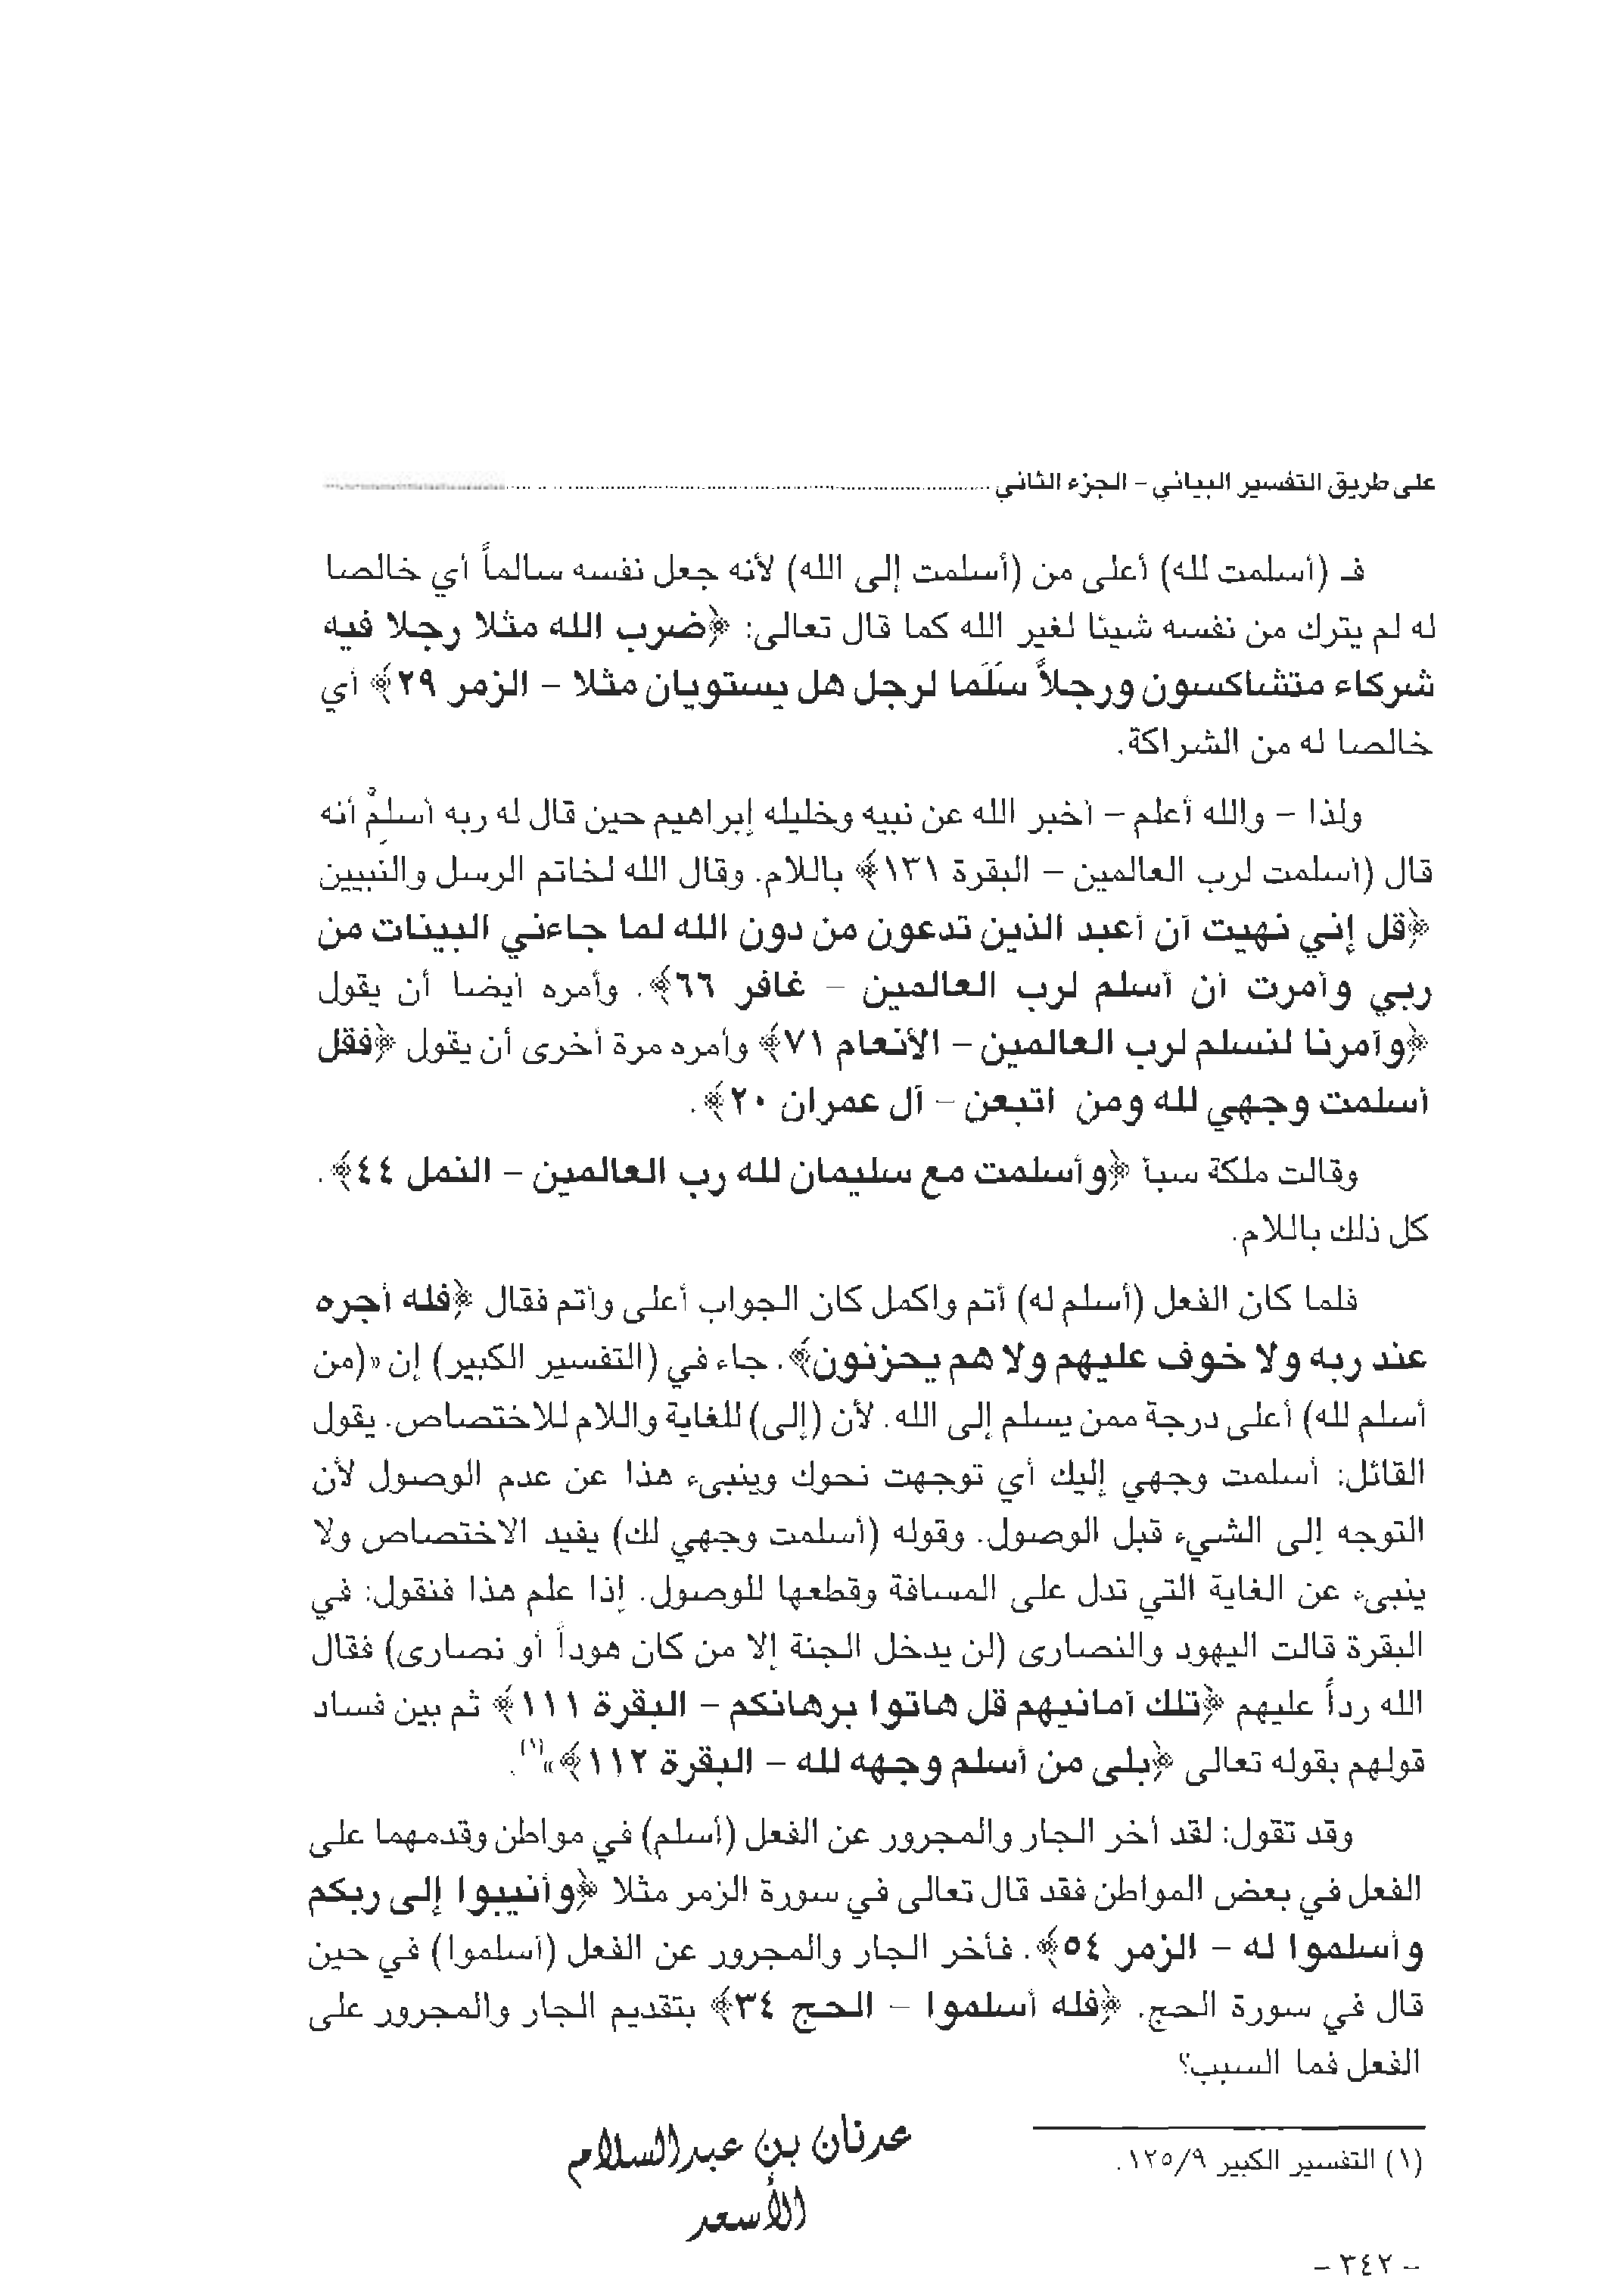 على طريق التفسير البياني – الجزء الثاني
فـ (أسلمت لله) أعلى من (أسلمت إلى الله) لأنه جعل نفسه سالماً أي خالصا
له لم يترك من نفسه شيئا لغير الله كما قال تعالى: ﴿ضرب الله مثلا رجلا فيه
شركاء متشاكسون ورجلاً سَلَما لرجل هل يستويان مثلا – الزمر ٢٩﴾ أي
خالصا له من الشراكة.
ولذا – والله أعلم – أخبر الله عن نبيه وخليله إبراهيم حين قال له ربه أسلِمْ أنه
قال (أسلمت لرب العالمين – البقرة ١٣١﴾ باللام. وقال الله لخاتم الرسل والنبيين
﴿قل إني نهيت أن أعبد الذين تدعون من دون الله لما جاءني البينات من
ربي وأمرت أن أسلم لرب العالمين – غافر ٦٦﴾. وأمره أيضا أن يقول
﴿وأمرنا لنسلم لرب العالمين – الأنعام ٧١﴾ وأمره مرة أخرى أن يقول ﴿فقل
أسلمت وجهي لله ومن اتبعن – آل عمران ٢٠﴾.
وقالت ملكة سبأ ﴿وأسلمت مع سليمان لله رب العالمين – النمل ٤٤﴾.
كل ذلك باللام.
فلما كان الفعل (أسلم له) أتم واكمل كان الجواب أعلى وأتم فقال ﴿فله أجره
عند ربه ولا خوف عليهم ولا هم يحزنون﴾. جاء في (التفسير الكبير) إن «(من
أسلم لله) أعلى درجة ممن يسلم إلى الله. لأن (إلى) للغاية واللام للاختصاص. يقول
القائل: أسلمت وجهي إليك أي توجهت نحوك وينبىء هذا عن عدم الوصول لأن
التوجه إلى الشيء قبل الوصول. وقوله (أسلمت وجهي لك) يفيد الاختصاص ولا
ينبىء عن الغاية التي تدل على المسافة وقطعها للوصول. إذا علم هذا فنقول: في
البقرة قالت اليهود والنصارى (لن يدخل الجنة إلا من كان هوداً أو نصارى) فقال
الله رداً عليهم ﴿تلك أمانيهم قل هاتوا برهانكم – البقرة ١١١﴾ ثم بين فساد
قولهم بقوله تعالى ﴿بلى من أسلم وجهه لله – البقرة ١١٢﴾»(١).
وقد تقول: لقد أخر الجار والمجرور عن الفعل (أسلم) في مواطن وقدمهما على
الفعل في بعض المواطن فقد قال تعالى في سورة الزمر مثلا ﴿وأنيبوا إلى ربكم
وأسلموا له – الزمر ٥٤﴾. فأخر الجار والمجرور عن الفعل (أسلموا) في حين
قال في سورة الحج. ﴿فله أسلموا – الحج ٣٤﴾ بتقديم الجار والمجرور على
الفعل فما السبب؟
(١) التفسير الكبير ١٢٥/٩.
عدنان بن عبدالسلام
الأسعد
– ٣٤٢ –